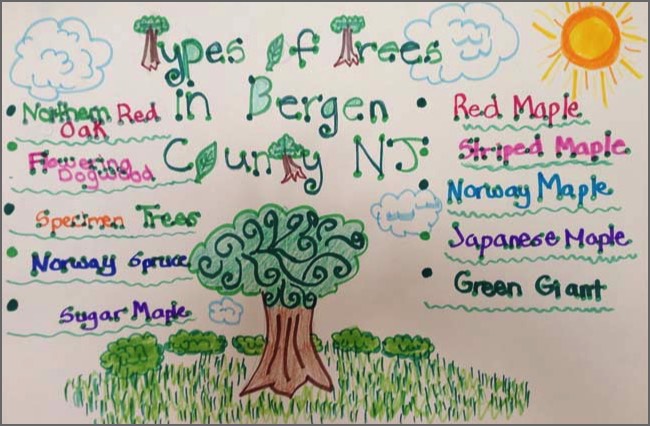 Types of Trees
in Bergen
County NJ
Northern Red
Oak
Flowering
Dogwood
Specimen Trees
Norway Spruce
Sugar Maple
Red Maple
Striped Maple
Norway Maple
Japanese Maple
Green Giant